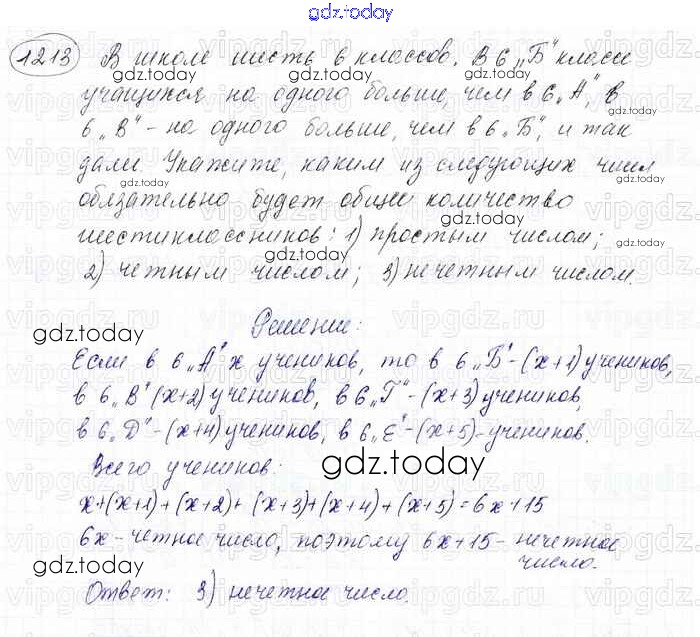 gdz.today
1213 В школе шесть 6 классов. В 6 „Б" классе
учащихся на одного больше, чем в 6 „А", в
6 „В" - на одного больше, чем в 6 „Б", и так
дали. Укажите, каким из следующих чисел
обязательно будет общее количество
шестиклассников: 1) простым числом;
2) четным числом; 3) нечетным числом.
Решение:
Если в 6 „А" x учеников, то в 6 „Б" - (x+1) учеников,
в 6 „В" (x+2) учеников, в 6 „Г" - (x+3) учеников,
в 6 „Д" - (x+4) учеников, в 6 „Е" - (x+5) - учеников.
Всего учеников:
x+(x+1)+(x+2)+(x+3)+(x+4)+(x+5)=6x+15
6x - четное число, поэтому 6x+15 - нечетное
число.
Ответ: 3) нечетное число.